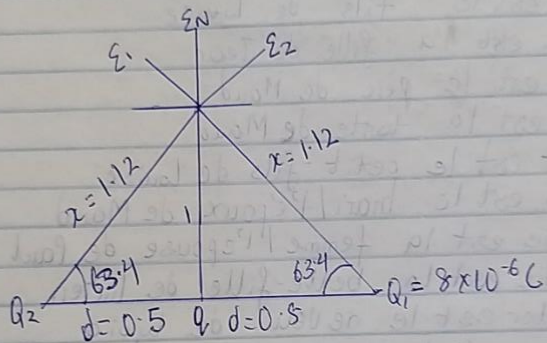 εN
ε1
ε2
x = 1.12
x = 1.12
1
63.4
63.4
Q2
d = 0.5
q
d = 0.5
Q1 = 8 × 10⁻⁶ C